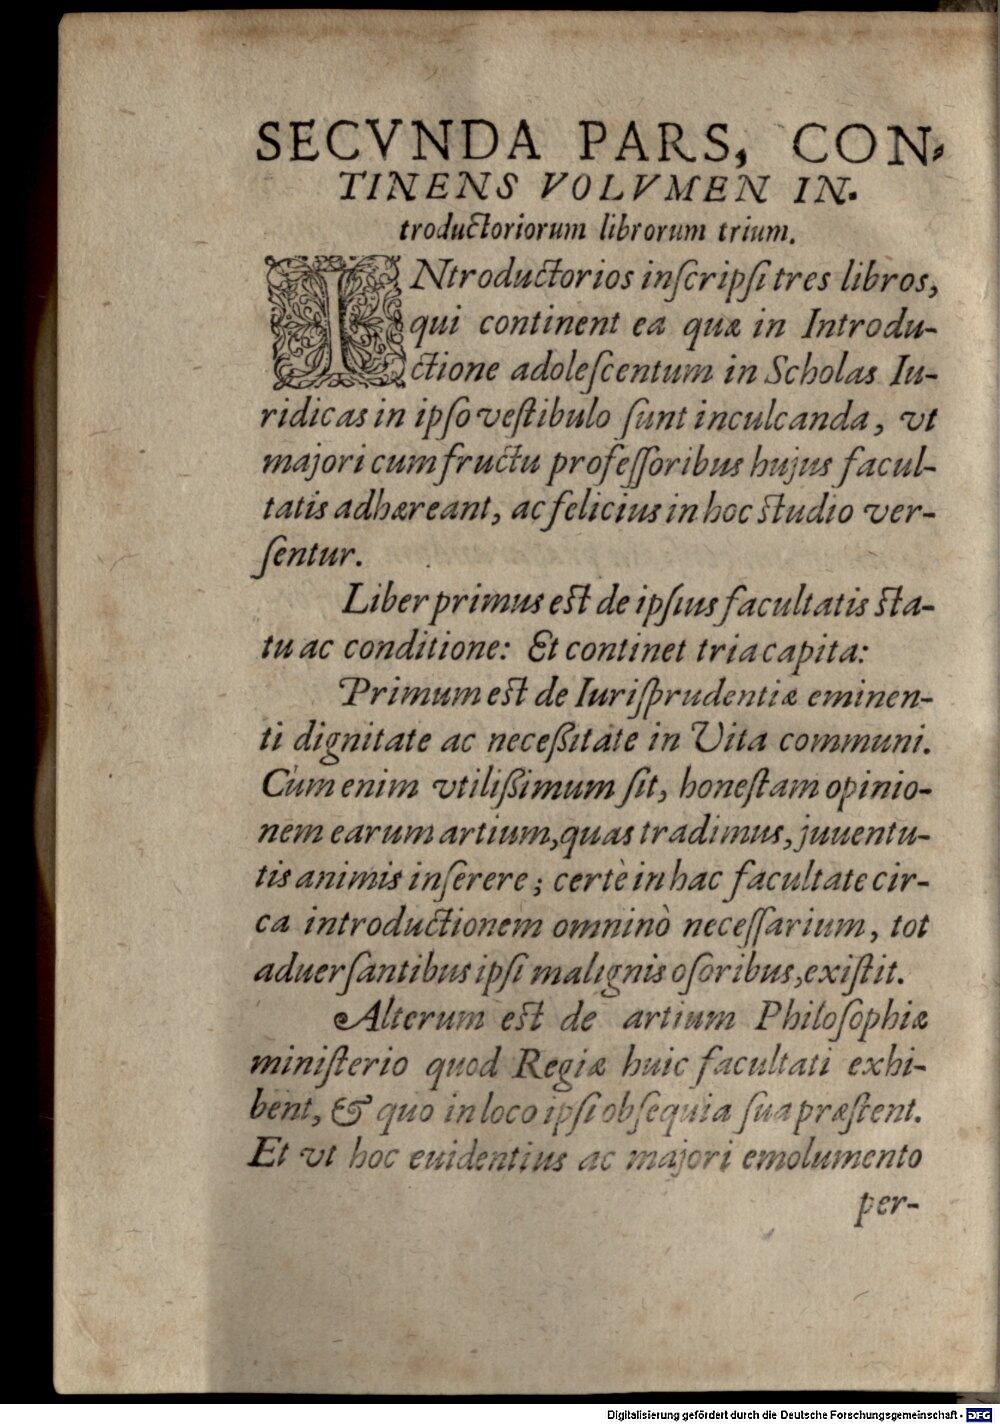 SECVNDA PARS, CON-
TINENS VOLVMEN IN-
troductoriorum librorum trium.
INtroductorios inſcripſi tres libros,
qui continent ea quæ in Introdu-
ctione adoleſcentum in Scholas Iu-
ridicas in ipſo veſtibulo ſunt inculcanda, vt
majori cum fructu profeſſoribus hujus facul-
tatis adhæreant, ac felicius in hoc ſtudio ver-
ſentur.
Liber primus eſt de ipſius facultatis ſta-
tu ac conditione: Et continet tria capita:
Primum eſt de Iuriſprudentiæ eminen-
ti dignitate ac neceßitate in Vita communi.
Cùm enim vtilißimum ſit, honeſtam opinio-
nem earum artium, quas tradimus, juuentu-
tis animis inſerere; certè in hac facultate cir-
ca introductionem omninò neceſſarium, tot
aduerſantibus ipſi malignis oſoribus, exiſtit.
Alterum eſt de artium Philoſophiæ
miniſterio quod Regiæ huic facultati exhi-
bent, & quo in loco ipſi obſequia ſua præſtent.
Et vt hoc euidentius ac majori emolumento
per-
Digitalisierung gefördert durch die Deutsche Forschungsgemeinschaft - DFG